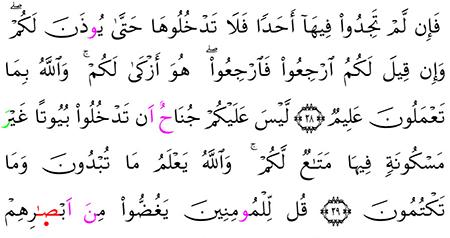 فَإِن لَّمْ تَجِدُوا۟ فِيهَآ أَحَدًا فَلَا تَدْخُلُوهَا حَتَّىٰ يُوذَنَ لَكُمْ ۖ
وَإِن قِيلَ لَكُمُ ٱرْجِعُوا۟ فَٱرْجِعُوا۟ ۖ هُوَ أَزْكَىٰ لَكُمْ ۚ وَٱللَّهُ بِمَا
تَعْمَلُونَ عَلِيمٌ ﴿٢٨﴾ لَّيْسَ عَلَيْكُمْ جُنَاحٌ اَن تَدْخُلُوا۟ بُيُوتًا غَيْرَ
مَسْكُونَةٍ فِيهَا مَتَـٰعٌ لَّكُمْ ۚ وَٱللَّهُ يَعْلَمُ مَا تُبْدُونَ وَمَا
تَكْتُمُونَ ﴿٢٩﴾ قُل لِّلْمُومِنِينَ يَغُضُّوا۟ مِنَ اَبْصَـٰرِهِمْ